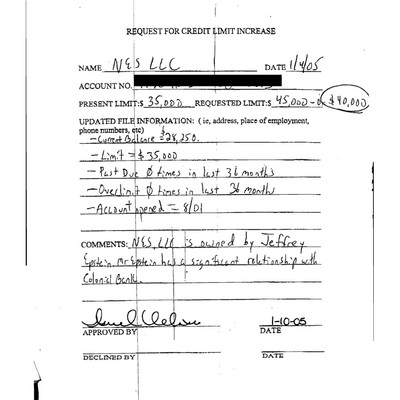 REQUEST FOR CREDIT LIMIT INCREASE
NAME NES LLC DATE 1/4/05
ACCOUNT NO.
PRESENT LIMIT:$ 35,000 REQUESTED LIMIT:$ 45,000 - or $40,000
UPDATED FILE INFORMATION: ( ie, address, place of employment,
phone numbers, etc)
- Current Balance $28,250.
- Limit = $35,000
- Past Due 0 times in last 36 months
- Overlimit 0 times in last 36 months
- Account opened = 8/01
COMMENTS: NES, LLC is owned by Jeffrey
Epstein. Mr Epstein has a significant relationship with
Colonial Bank.
1-10-05
APPROVED BY DATE
DECLINED BY DATE